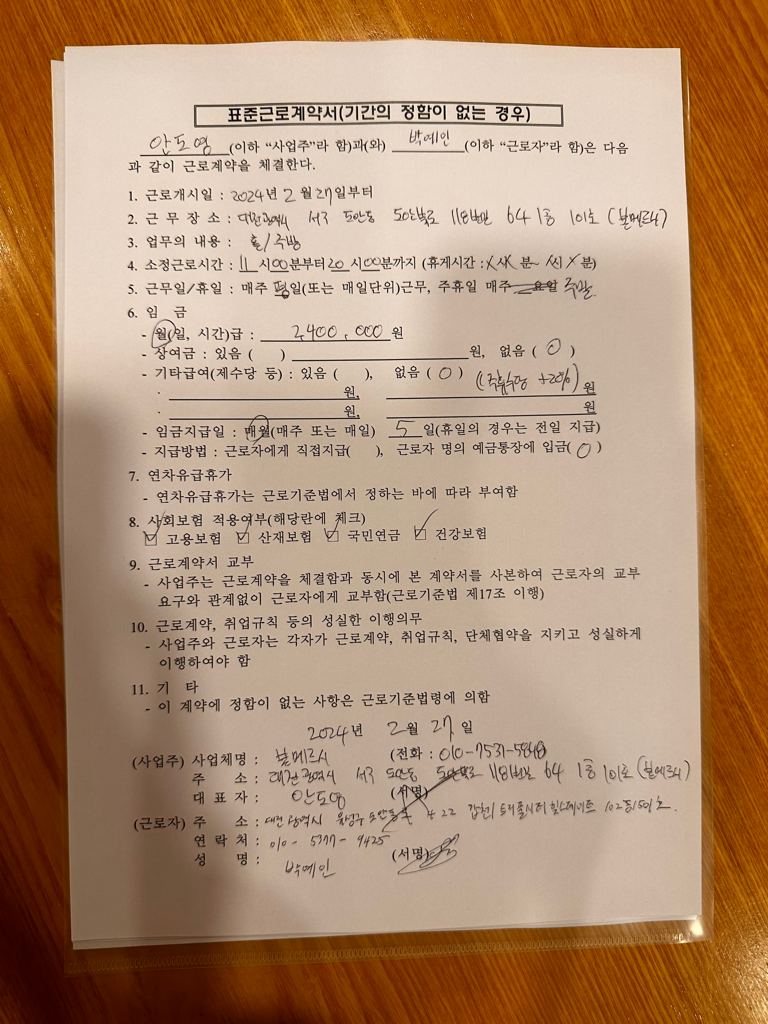 표준근로계약서(기간의 정함이 없는 경우)
안도영 (이하 “사업주”라 함)과(와) 박예인 (이하 “근로자”라 함)은 다음
과 같이 근로계약을 체결한다.
1. 근로개시일 : 2024년 2월 27일부터
2. 근 무 장 소 : 대전광역시 서구 도안동 도안북로 118번길 64 1층 101호 (봄메르시)
3. 업무의 내용 : 홀/주방
4. 소정근로시간 : 11시00분부터20시00분까지 (휴게시간 : X시X분~X시X분)
5. 근무일/휴일 : 매주 평일(또는 매일단위)근무, 주휴일 매주 요일 주말
6. 임 금
- 월(일, 시간)급 : 2,400,000 원
- 상여금 : 있음 ( ) 원, 없음 ( O )
- 기타급여(제수당 등) : 있음 ( ), 없음 ( O )
· 원, (주휴수당 +20%) 원
· 원, 원
- 임금지급일 : 매월(매주 또는 매일) 5 일(휴일의 경우는 전일 지급)
- 지급방법 : 근로자에게 직접지급( ), 근로자 명의 예금통장에 입금( O )
7. 연차유급휴가
- 연차유급휴가는 근로기준법에서 정하는 바에 따라 부여함
8. 사회보험 적용여부(해당란에 체크)
☑ 고용보험 ☑ 산재보험 ☑ 국민연금 ☑ 건강보험
9. 근로계약서 교부
- 사업주는 근로계약을 체결함과 동시에 본 계약서를 사본하여 근로자의 교부
요구와 관계없이 근로자에게 교부함(근로기준법 제17조 이행)
10. 근로계약, 취업규칙 등의 성실한 이행의무
- 사업주와 근로자는 각자가 근로계약, 취업규칙, 단체협약을 지키고 성실하게
이행하여야 함
11. 기 타
- 이 계약에 정함이 없는 사항은 근로기준법령에 의함
2024년 2월 27일
(사업주) 사업체명 : 봄메르시 (전화 : 010-7531-
주 소 : 대전광역시 서구 도안동 도안북로 118번길 64 1층 101호 (봄메르시)
대 표 자 : 안도영 (서명)
(근로자) 주 소 : 대전광역시 유성구 422 갑천 트리풀시티 힐스테이트
연 락 처 : 010-5377-9425
성 명 : 박예인 (서명)